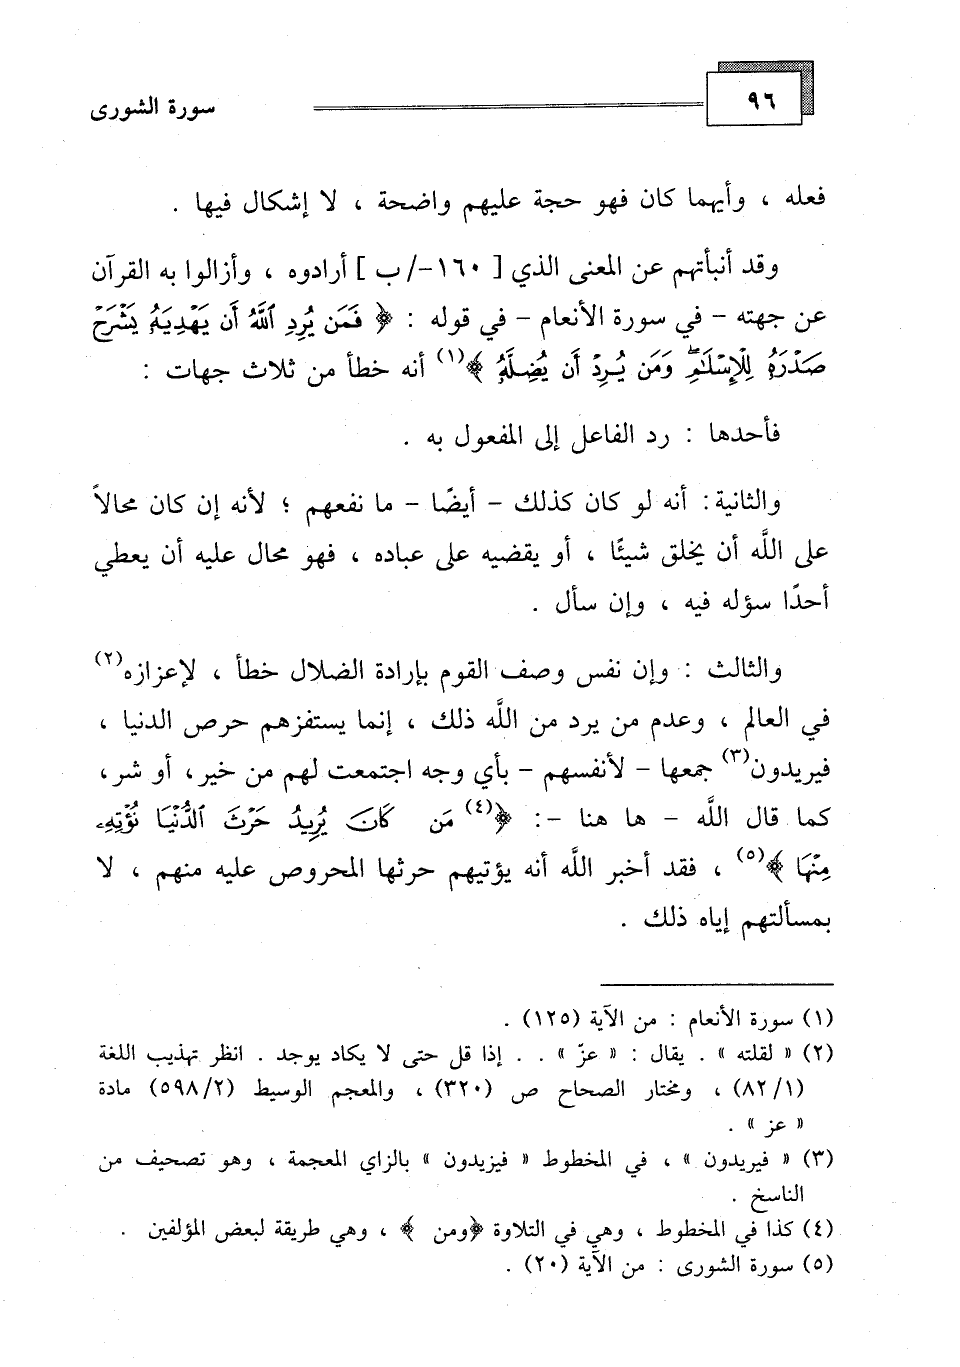 ٩٦
سورة الشورى
فعله ، وأيهما كان فهو حجة عليهم واضحة ، لا إشكال فيها .
وقد أنبأتهم عن المعنى الذي [ ١٦٠-/ب ] أرادوه ، وأزالوا به القرآن
عن جهته - في سورة الأنعام - في قوله : ﴿ فَمَن يُرِدِ ٱللَّهُ أَن يَهْدِيَهُۥ يَشْرَحْ
صَدْرَهُۥ لِلْإِسْلَٰمِ ۖ وَمَن يُرِدْ أَن يُضِلَّهُۥ ﴾(١) أنه خطأ من ثلاث جهات :
فأحدها : رد الفاعل إلى المفعول به .
والثانية : أنه لو كان كذلك - أيضًا - ما نفعهم ؛ لأنه إن كان محالاً
على اللَّه أن يخلق شيئًا ، أو يقضيه على عباده ، فهو محال عليه أن يعطي
أحدًا سؤله فيه ، وإن سأل .
والثالث : وإن نفس وصف القوم بإرادة الضلال خطأ ، لإعزازه(٢)
في العالم ، وعدم من يرد من اللَّه ذلك ، إنما يستفزهم حرص الدنيا ،
فيريدون(٣) جمعها - لأنفسهم - بأي وجه اجتمعت لهم من خير، أو شر،
كما قال اللَّه - ها هنا -: ﴿(٤) مَن كَانَ يُرِيدُ حَرْثَ ٱلدُّنْيَا نُؤْتِهِۦ
مِنْهَا ﴾(٥) ، فقد أخبر اللَّه أنه يؤتيهم حرثها المحروص عليه منهم ، لا
بمسألتهم إياه ذلك .
(١) سورة الأنعام : من الآية (١٢٥) .
(٢) « لقلته » . يقال : « عزّ » . . إذا قل حتى لا يكاد يوجد . انظر تهذيب اللغة
(٨٢/١) ، ومختار الصحاح ص (٣٢٠) ، والمعجم الوسيط (٥٩٨/٢) مادة
« عز » .
(٣) « فيريدون » ، في المخطوط « فيزيدون » بالزاي المعجمة ، وهو تصحيف من
الناسخ .
(٤) كذا في المخطوط ، وهي في التلاوة ﴿ومن ﴾ ، وهي طريقة لبعض المؤلفين .
(٥) سورة الشورى : من الآية (٢٠) .